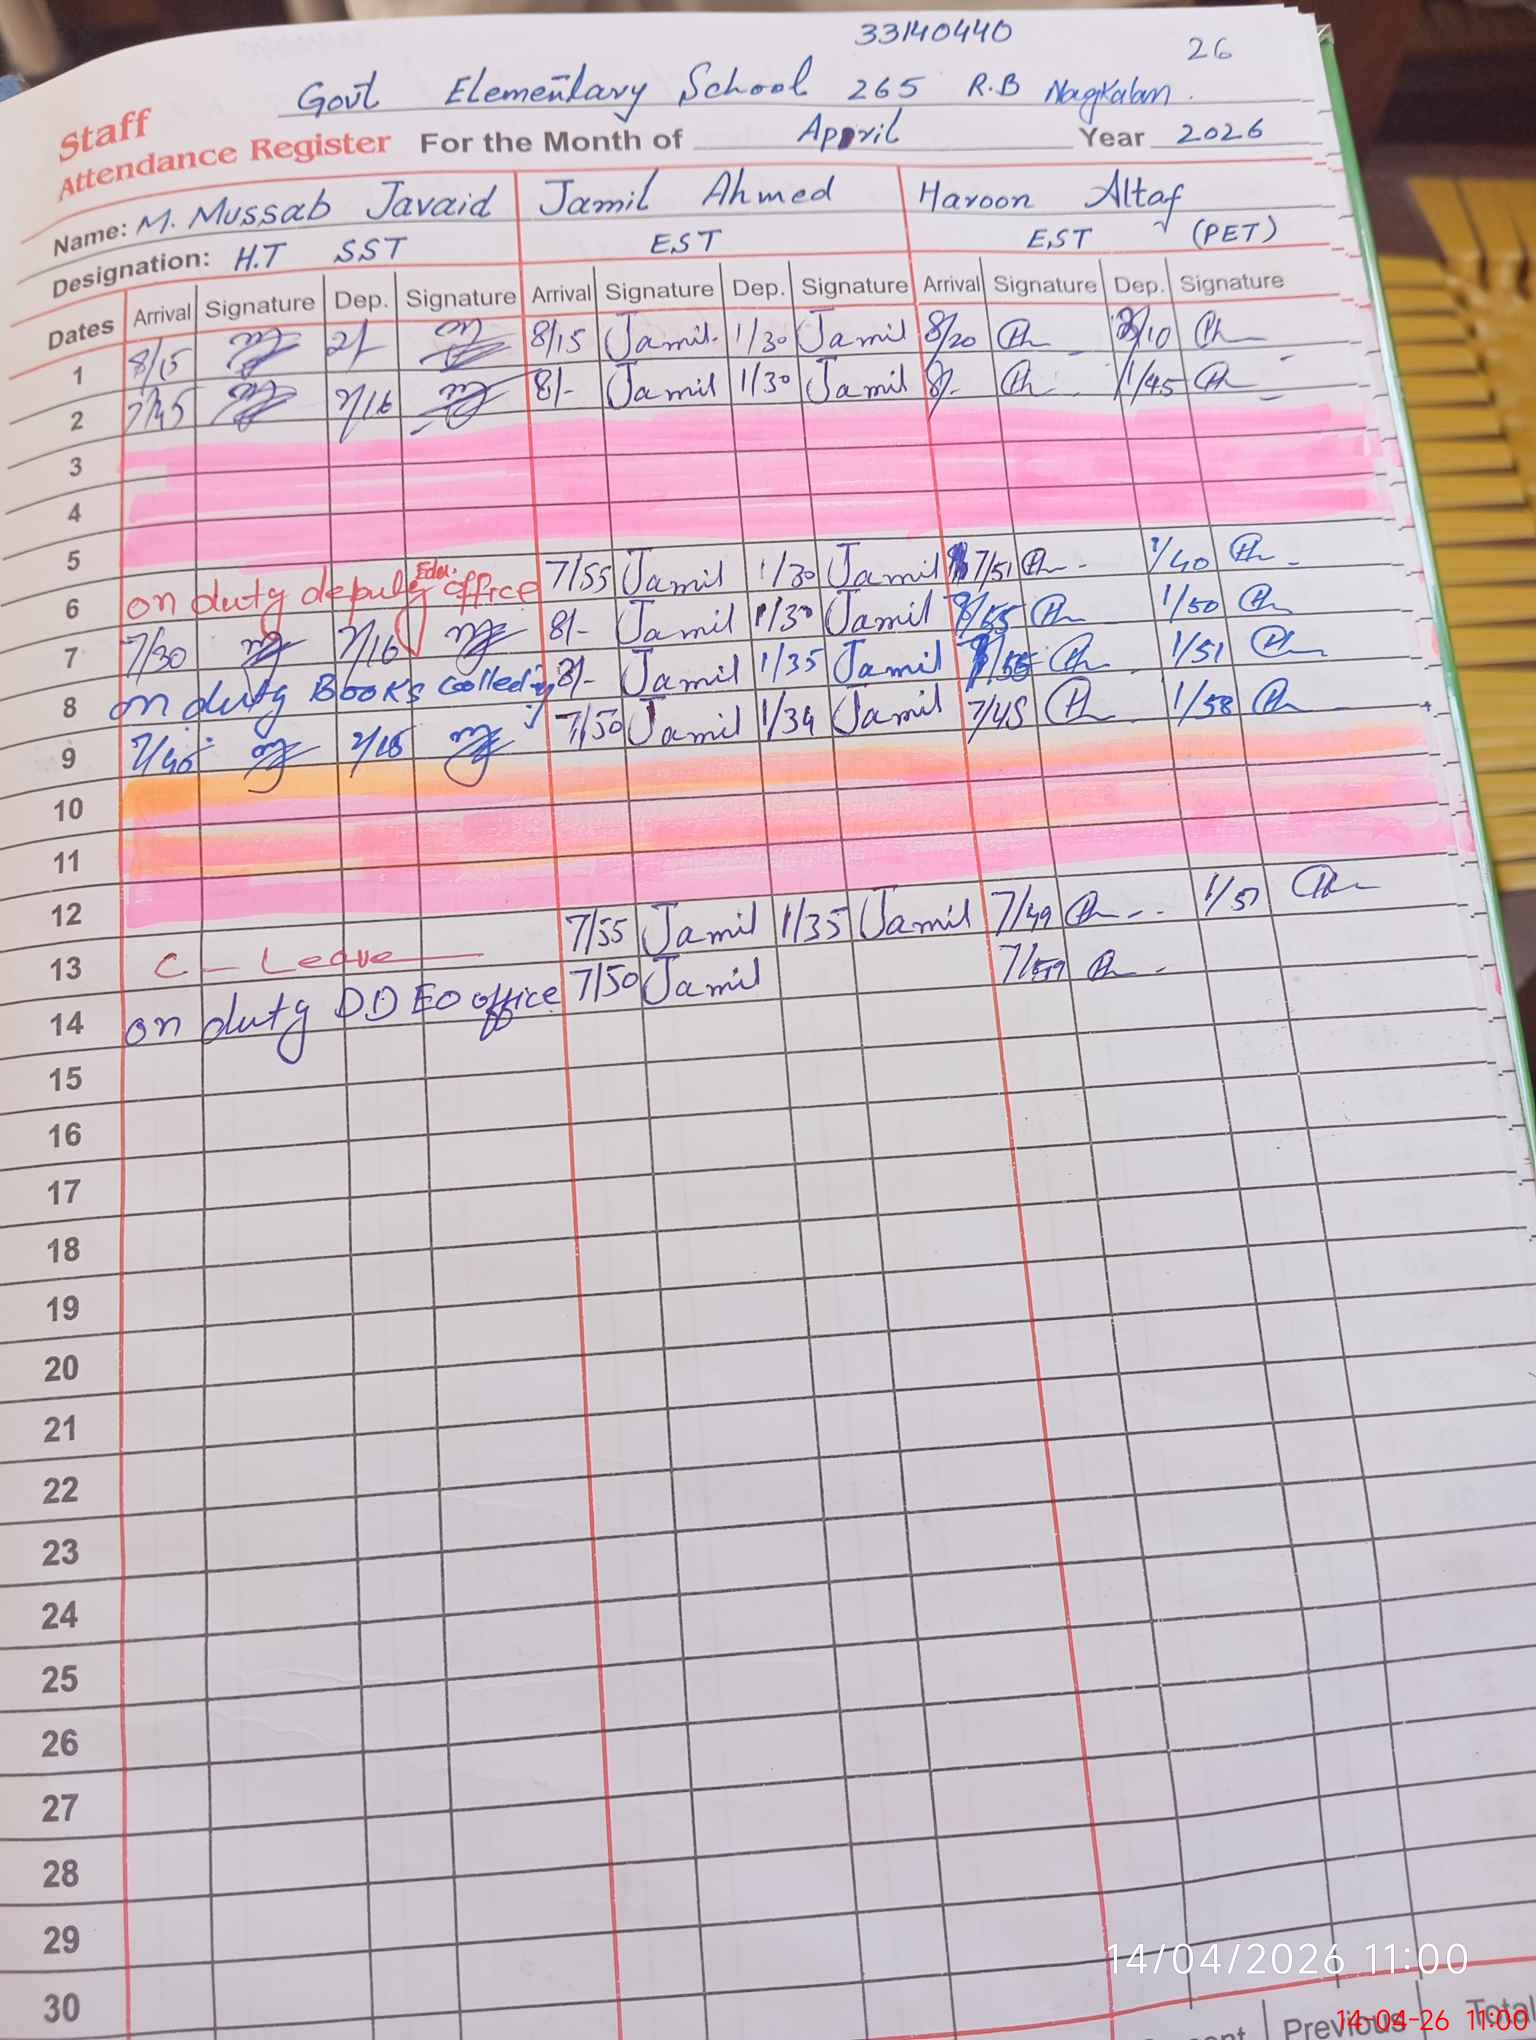 33140440
26
Govt Elementary School 265 R.B Nagkalan.
Staff
Attendance Register For the Month of Appril Year 2026
Name: M. Mussab Javaid Jamil Ahmed Haroon Altaf
Designation: H.T SST EST EST (PET)
Dates Arrival Signature Dep. Signature Arrival Signature Dep. Signature Arrival Signature Dep. Signature
1 8/15 2/- 8/15 Jamil. 1/30 Jamil 8/20 2/10
2 7/45 2/16 8/- Jamil 1/30 Jamil 8/- 1/45
3
4
5
6 on duty deputy Edu. office 7/55 Jamil 1/30 Jamil 7/51 1/40
7 7/30 2/16 8/- Jamil 1/30 Jamil 1/50
8 on duty Books 8/- Jamil 1/35 Jamil 1/51
9 2/15 7/50 Jamil 1/34 Jamil 7/45 1/58
10
11
12
13 C - Leave 7/55 Jamil 1/35 Jamil 7/49 1/51
14 on duty DDEO office 7/50 Jamil
15
16
17
18
19
20
21
22
23
24
25
26
27
28
29
30
14/04/2026 11:00
Previous Total
14-04-26 11:00